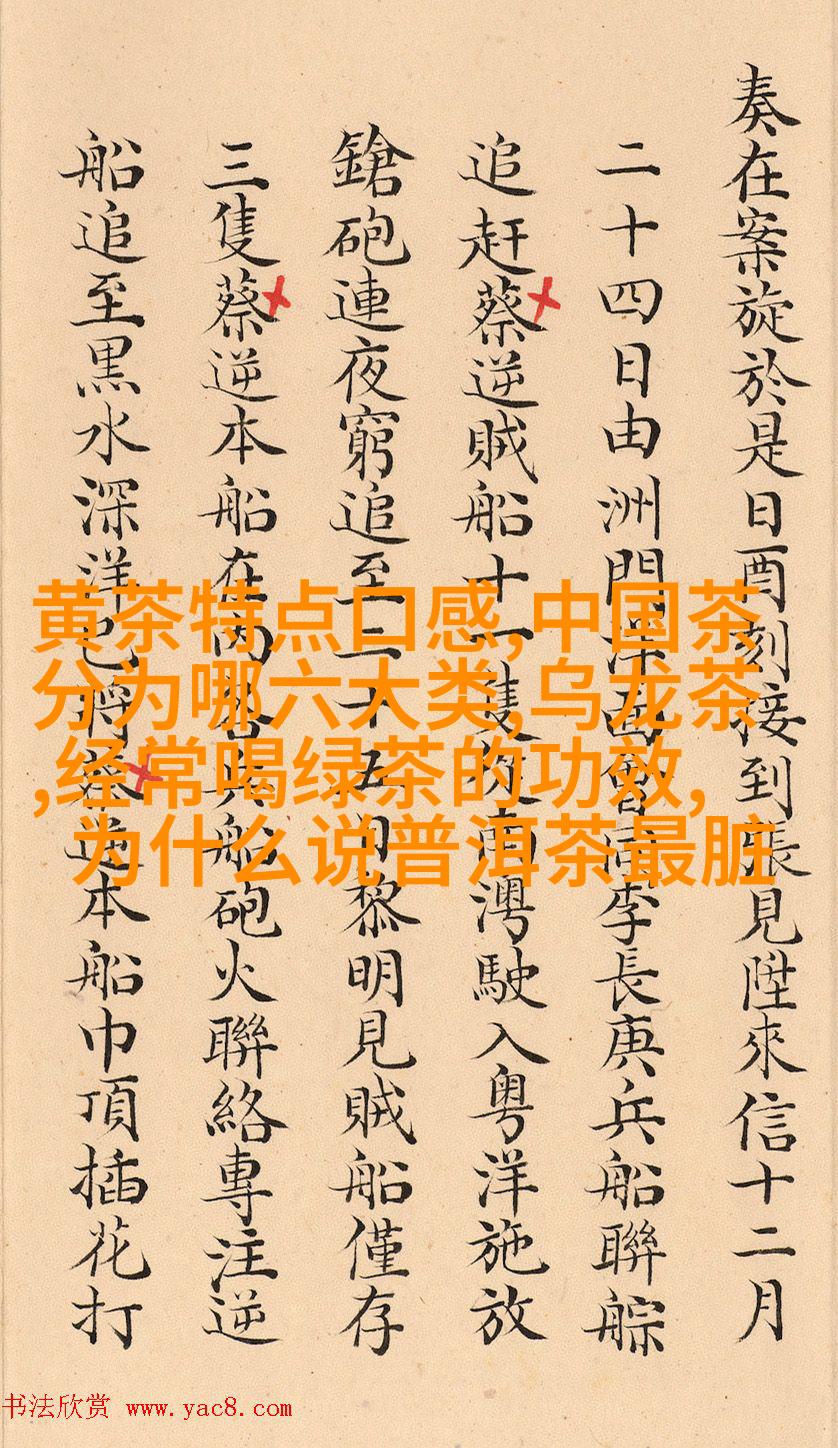 奏在案旋於是日酉刻接到張見陞來信十二月
二十四日由洲門洋面會同李長庚兵船聯䑸
追赶蔡逆賊船十一隻從南澳駛入粤洋施放
鎗砲連夜窮追至二十五日黎明見賊船僅存
三隻蔡逆本船在內各兵船砲火聯絡專注逆
船追至黒水深洋已將蔡逆本船巾頂插花打
黄茶特点口感,中国茶
分为哪六大类,乌龙茶
,经常喝绿茶的功效,
为什么说普洱茶最脏
书法欣赏 www.yac8.com